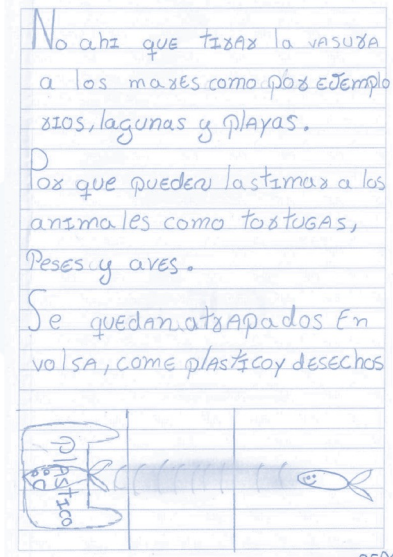 No ahi que tirar la vasura
a los mares como por ejemplo
rios, lagunas y playas.
Por que pueden lastimar a los
animales como tortugas,
Peses y aves.
Se quedan atrapados En
volsa, come plasticoy desechos
plastico